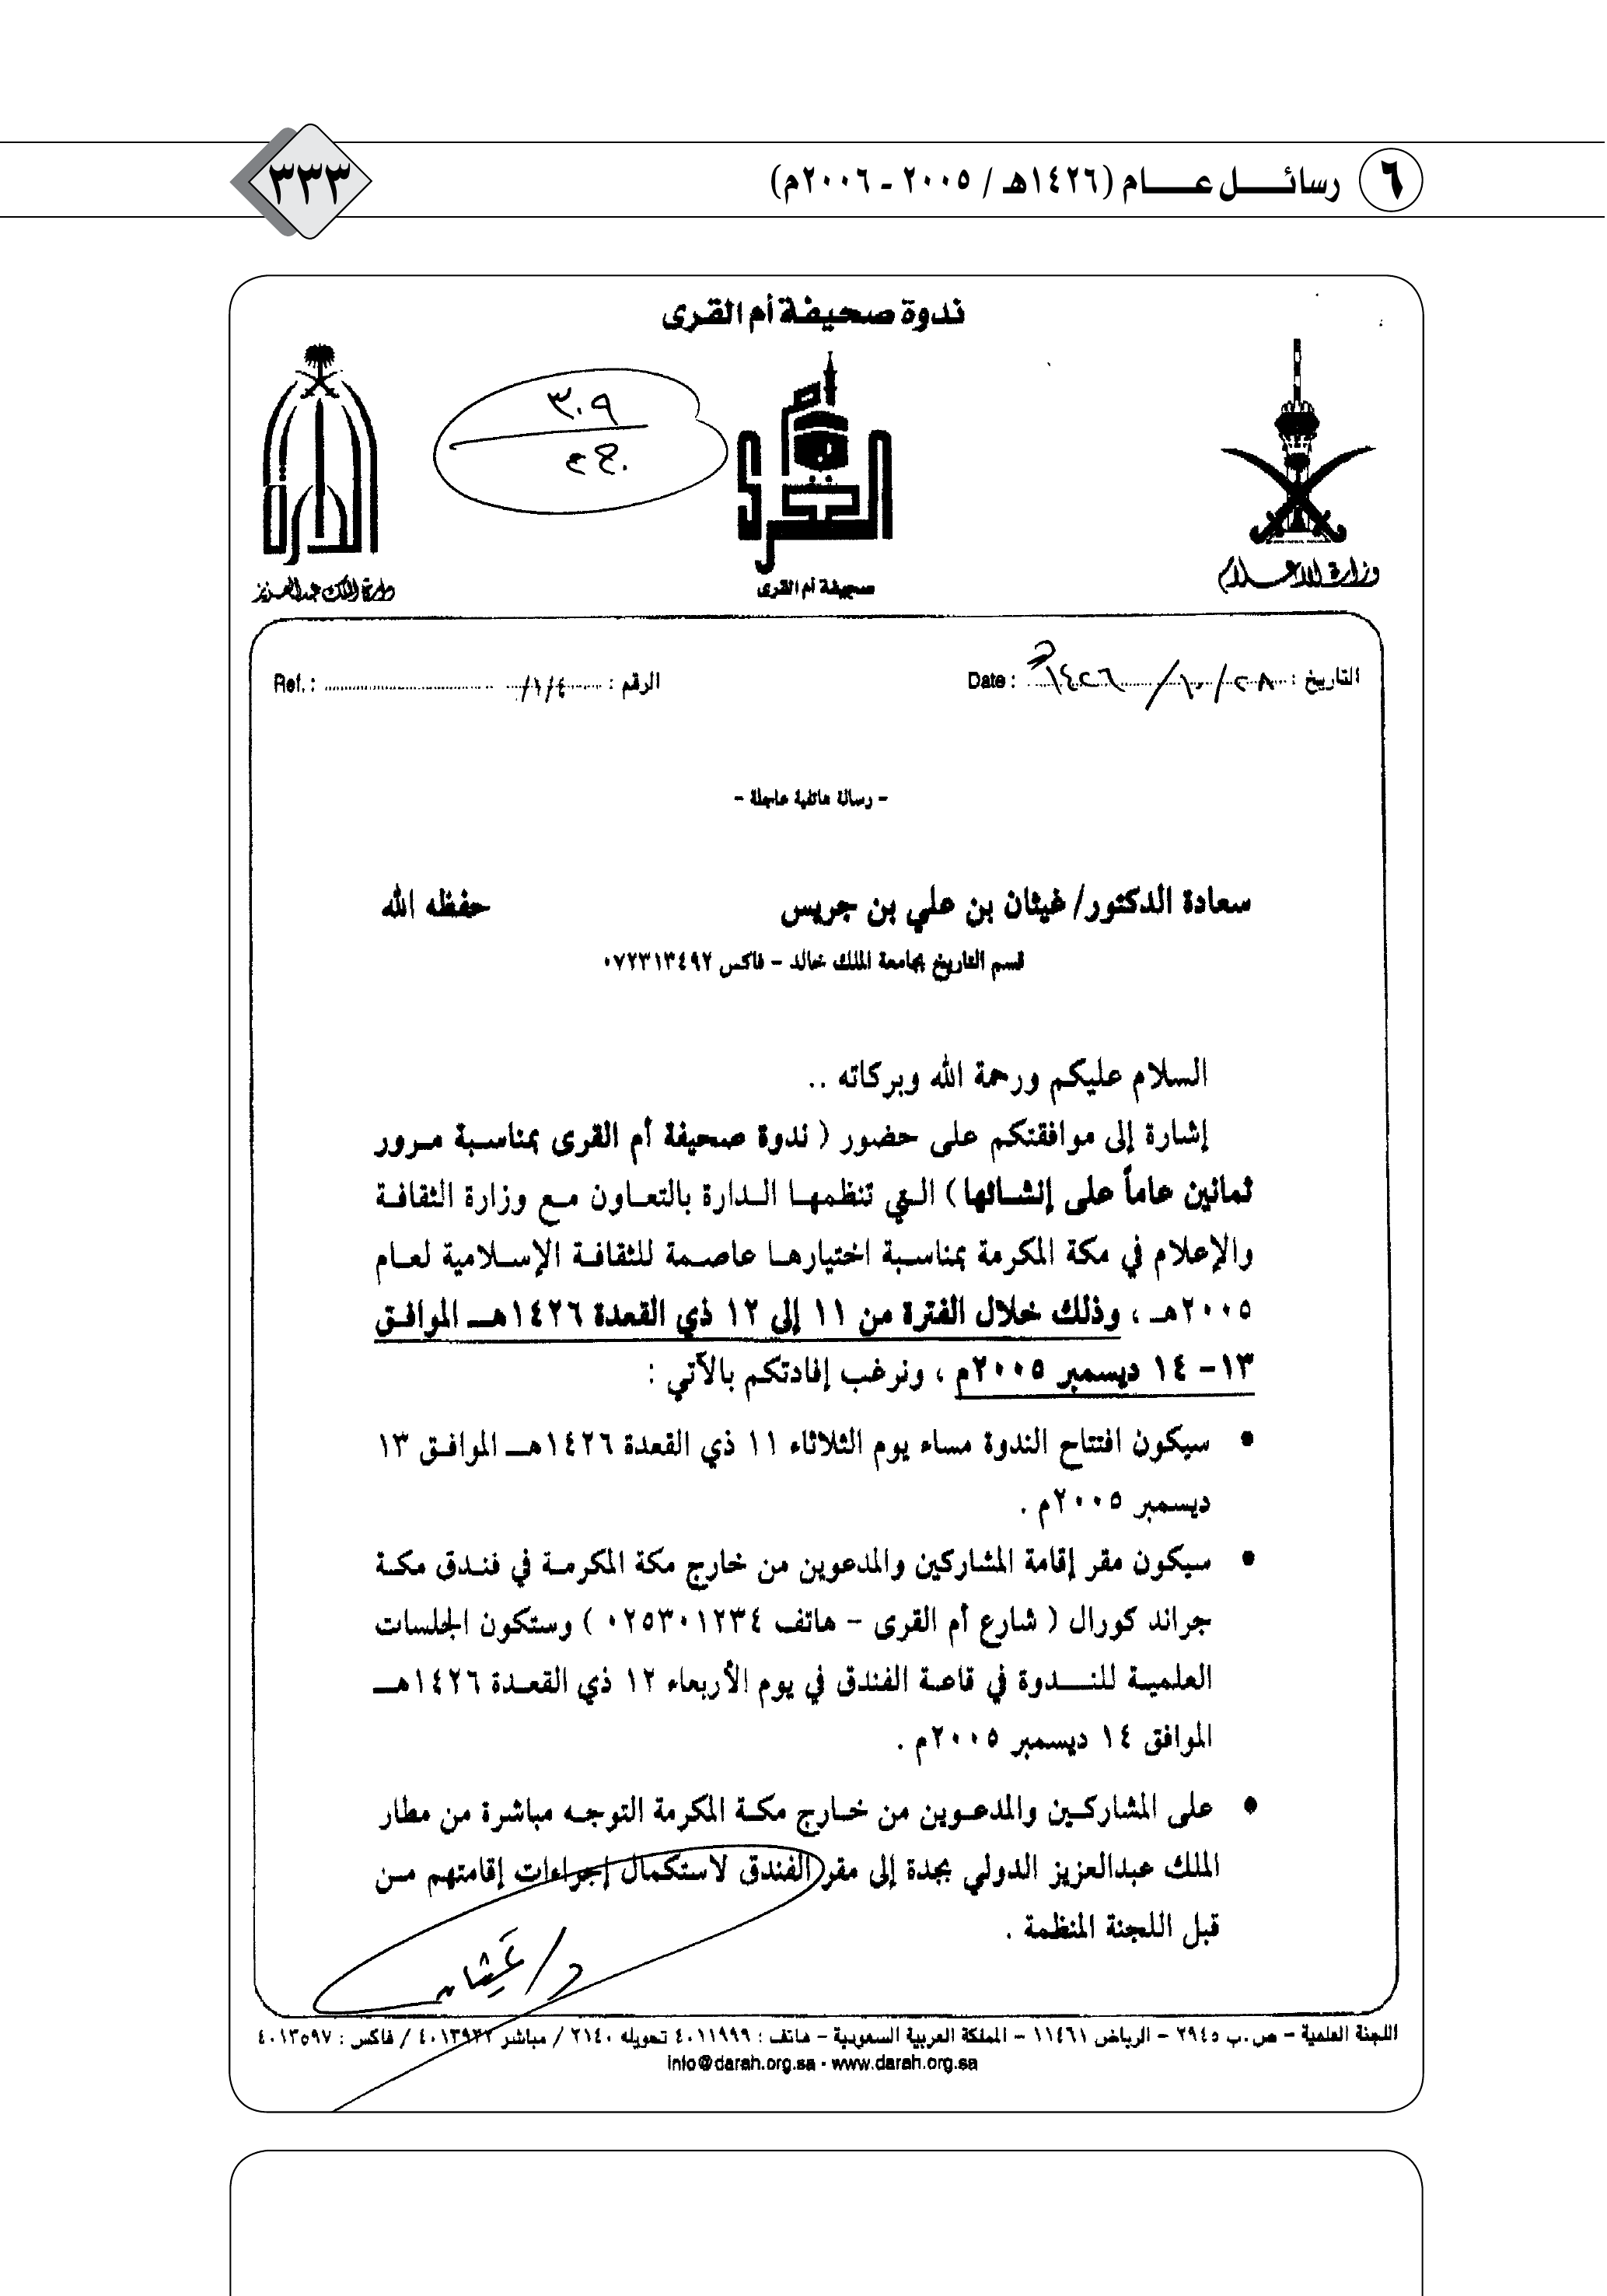 ٦ رسائل عام (١٤٢٦هـ / ٢٠٠٥ - ٢٠٠٦م)
٣٣٣
ندوة صحيفة أم القرى
٣٠٩
القرى
الدارة
وزارة الإعلام
صحيفة أم القرى
دارة الملك عبدالعزيز
التاريخ : ٢٨/١٠/١٤٢٦هـ Date :
الرقم : ٤/١/ Ref. :
- رسالة هاتفية عاجلة -
سعادة الدكتور/ غيثان بن علي بن جريس حفظه الله
قسم التاريخ بجامعة الملك خالد - فاكس ٠٧٢٣١٣٤٩٢
السلام عليكم ورحمة الله وبركاته ..
إشارة إلى موافقتكم على حضور ( ندوة صحيفة أم القرى بمناسبة مرور
ثمانين عاماً على إنشائها ) التي تنظمها الدارة بالتعاون مع وزارة الثقافة
والإعلام في مكة المكرمة بمناسبة اختيارها عاصمة للثقافة الإسلامية لعام
٢٠٠٥هـ ، وذلك خلال الفترة من ١١ إلى ١٢ ذي القعدة ١٤٢٦هـ الموافق
١٣- ١٤ ديسمبر ٢٠٠٥م ، ونرغب إفادتكم بالآتي :
• سيكون افتتاح الندوة مساء يوم الثلاثاء ١١ ذي القعدة ١٤٢٦هـ الموافق ١٣
ديسمبر ٢٠٠٥م .
• سيكون مقر إقامة المشاركين والمدعوين من خارج مكة المكرمة في فندق مكة
جراند كورال ( شارع أم القرى - هاتف ٠٢٥٣٠١٢٣٤ ) وستكون الجلسات
العلمية للندوة في قاعة الفندق في يوم الأربعاء ١٢ ذي القعدة ١٤٢٦هـ
الموافق ١٤ ديسمبر ٢٠٠٥م .
• على المشاركين والمدعوين من خارج مكة المكرمة التوجه مباشرة من مطار
الملك عبدالعزيز الدولي بجدة إلى مقر الفندق لاستكمال إجراءات إقامتهم من
قبل اللجنة المنظمة .
د/ غيثان
اللجنة العلمية - ص.ب ٢٩٤٥ - الرياض ١١٤٦١ - المملكة العربية السعودية - هاتف : ٤٠١١٩٩٩ تحويله ٢١٤٠ / مباشر ٤٠١٣٩٣٢ / فاكس : ٤٠١٣٥٩٧
info@darah.org.sa - www.darah.org.sa